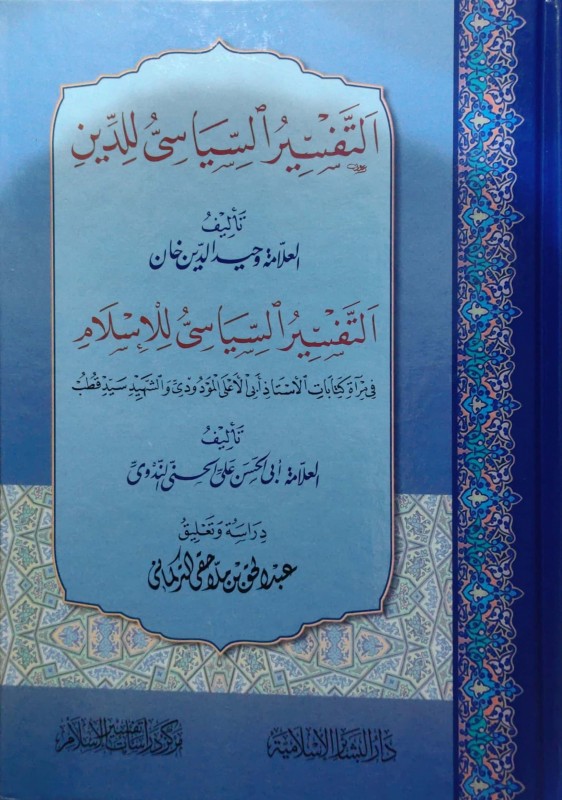 اَلتَّفْسِيْرُ السِّيَاسِيُّ لِلدِّينِ
تأليفُ
العلّامة وحيد الدين خان
اَلتَّفْسِيْرُ السِّيَاسِيُّ لِلْإِسْلَامِ
في مرآة كتابات الأستاذ أبي الأعلى المودودي والشهيد سيد قطب
تأليفُ
العلّامة أبي الحسن علي الحسني الندوي
دراسة وتعليق
عبد الحق بن ملا حقي التركماني
دار البشائر الإسلامية
مركز دراسات تفسير الإسلام